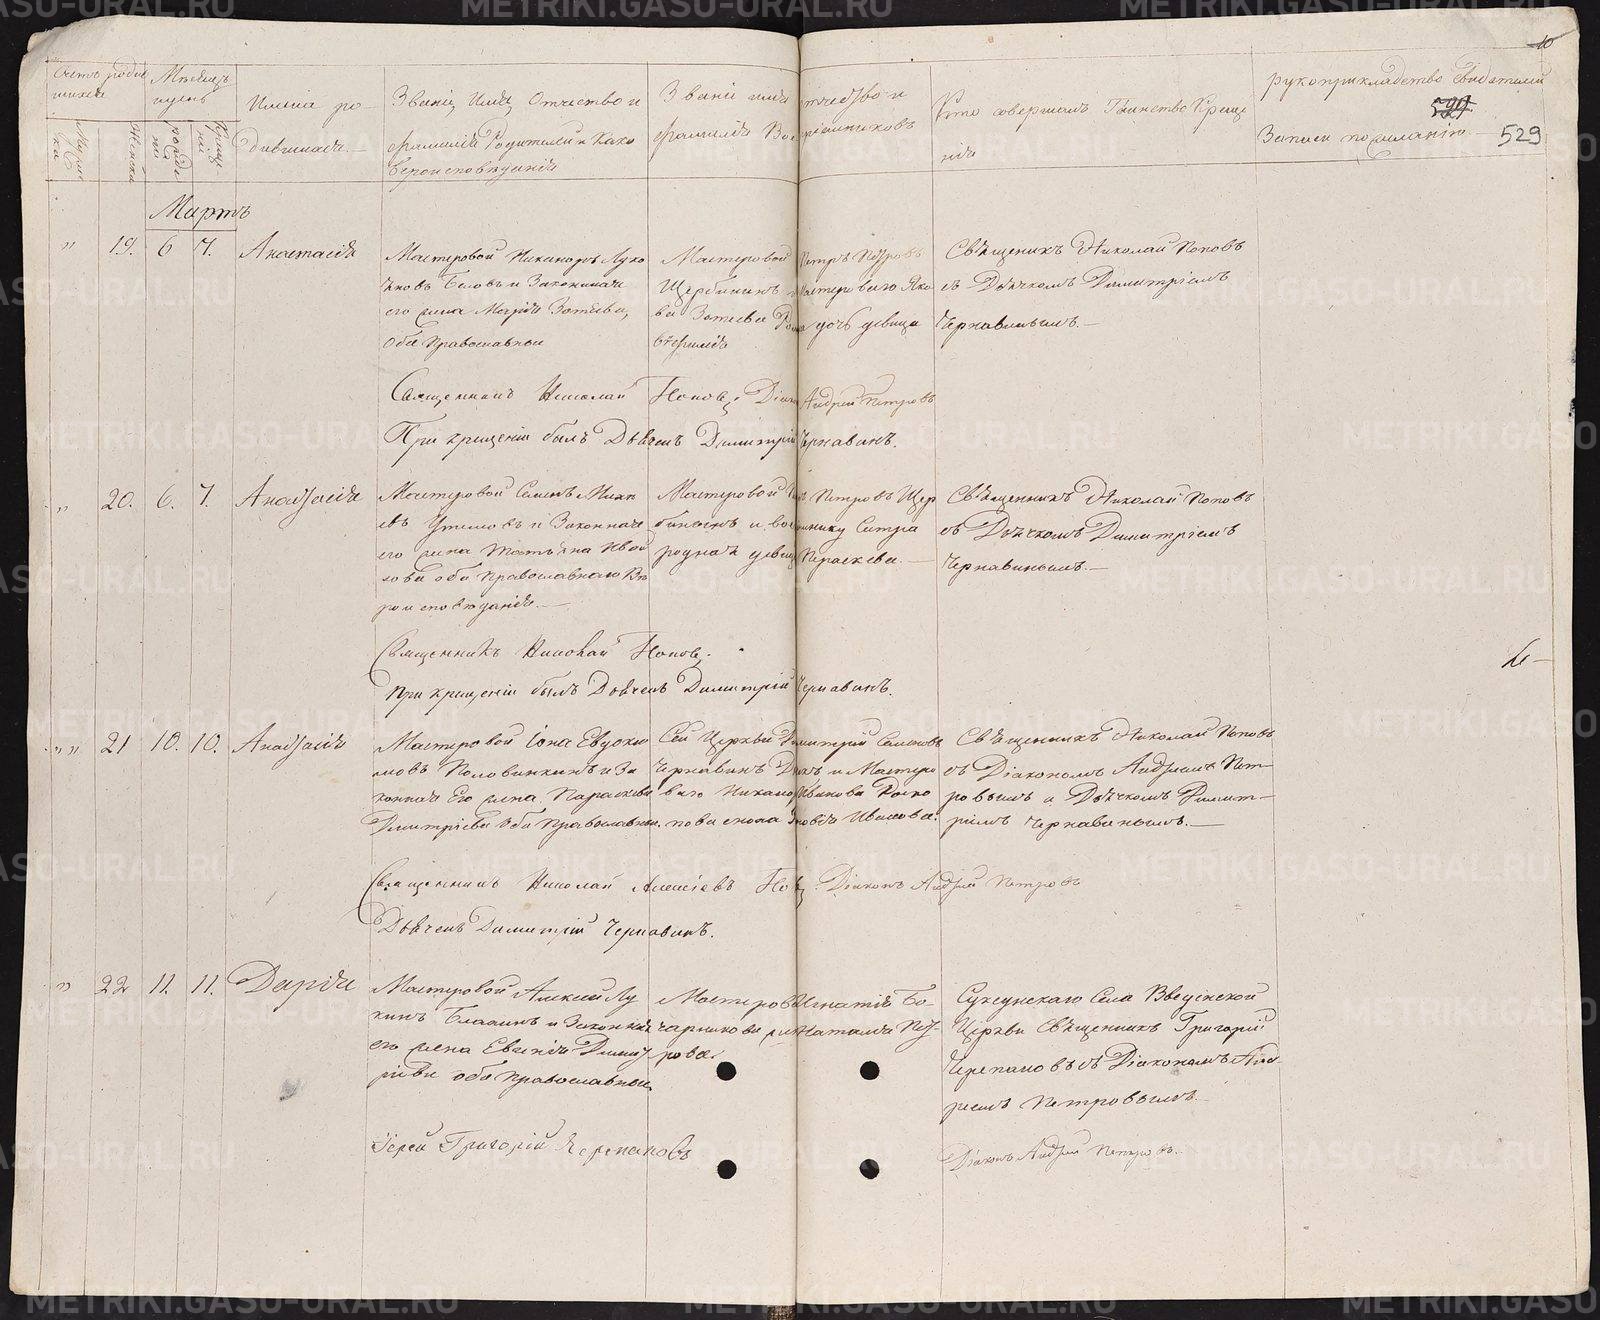 10
529
Счетъ родив
шихся
Мѣсяцъ
и день
Имена ро-
дившихся.
Званіе, Имя, Отчество и
фамилія Родителей и Како
Вероисповѣданія
Званіе имя отчество и
фамилія Воспріемниковъ
Кто совершалъ Таинство Креще
нія
рукоприкладство свидетелей
Записи по желанію
Женска
Мартъ
" 19. 6 7. Анастасія
Мастеровой Никаноръ Луко
яновъ Бѣловъ и Законная
его жена Марія Зотеева,
оба православные
Мастеровой Петръ Петровъ
Щербининъ и мастероваго Яко
ва Зотеева дочь девица
Священникъ Николай Поповъ
съ Дьячкомъ Димитріемъ
Чернавинымъ.—
Священникъ Николай Поповъ. Діаконъ Андрей Петровъ
При крещеніи былъ Дьячекъ Димитрій Чернавинъ.
" 20. 6. 7. Анастасія
Мастеровой Семенъ
и Законная
его жена Татьяна
оба православнаго Вѣ
роисповѣданія.—
Мастеровой Петровъ Щер
бининъ и сестра
родная девица Параскева.—
Священникъ Николай Поповъ
съ Дьячкомъ Димитріемъ
Чернавинымъ.—
Священникъ Николай Поповъ.
При крещеніи былъ Дьячекъ Димитрій Чернавинъ.
" 21 10. 10. Анастасія
Мастеровой Іона Евдоки
мовъ Половинкинъ и За
конная Его жена Параскева
Димитріева оба Православные.
Сей Церкви Димитрій Семеновъ
Чернавинъ Дьячекъ и Мастеро
ваго Никанора Иванова
пова жена Иванова.
Священникъ Николай Поповъ
съ Діакономъ Андреемъ Пет-
ровымъ и Дьячкомъ Димит-
ріемъ Чернавинымъ.—
Священникъ Николай Алексіевъ Поповъ. Діаконъ Андрей Петровъ
Дьячекъ Димитрій Чернавинъ.
" 22 11. 11. Дарія
Мастеровой Алексей Лу
кинъ и Законная
его жена Евгенія Димит
ріева оба православные
Мастеровой Игнатій Бо-
чарникова жена Наталья Пет-
рова.
Суксунскаго Села Введенской
Церкви Священникъ Григорій
Черепановъ съ Діакономъ Анд
реемъ Петровымъ.—
Іерей Григорій Черепановъ
Діаконъ Андрей Петровъ.
METRIKI.GASO-URAL.RU